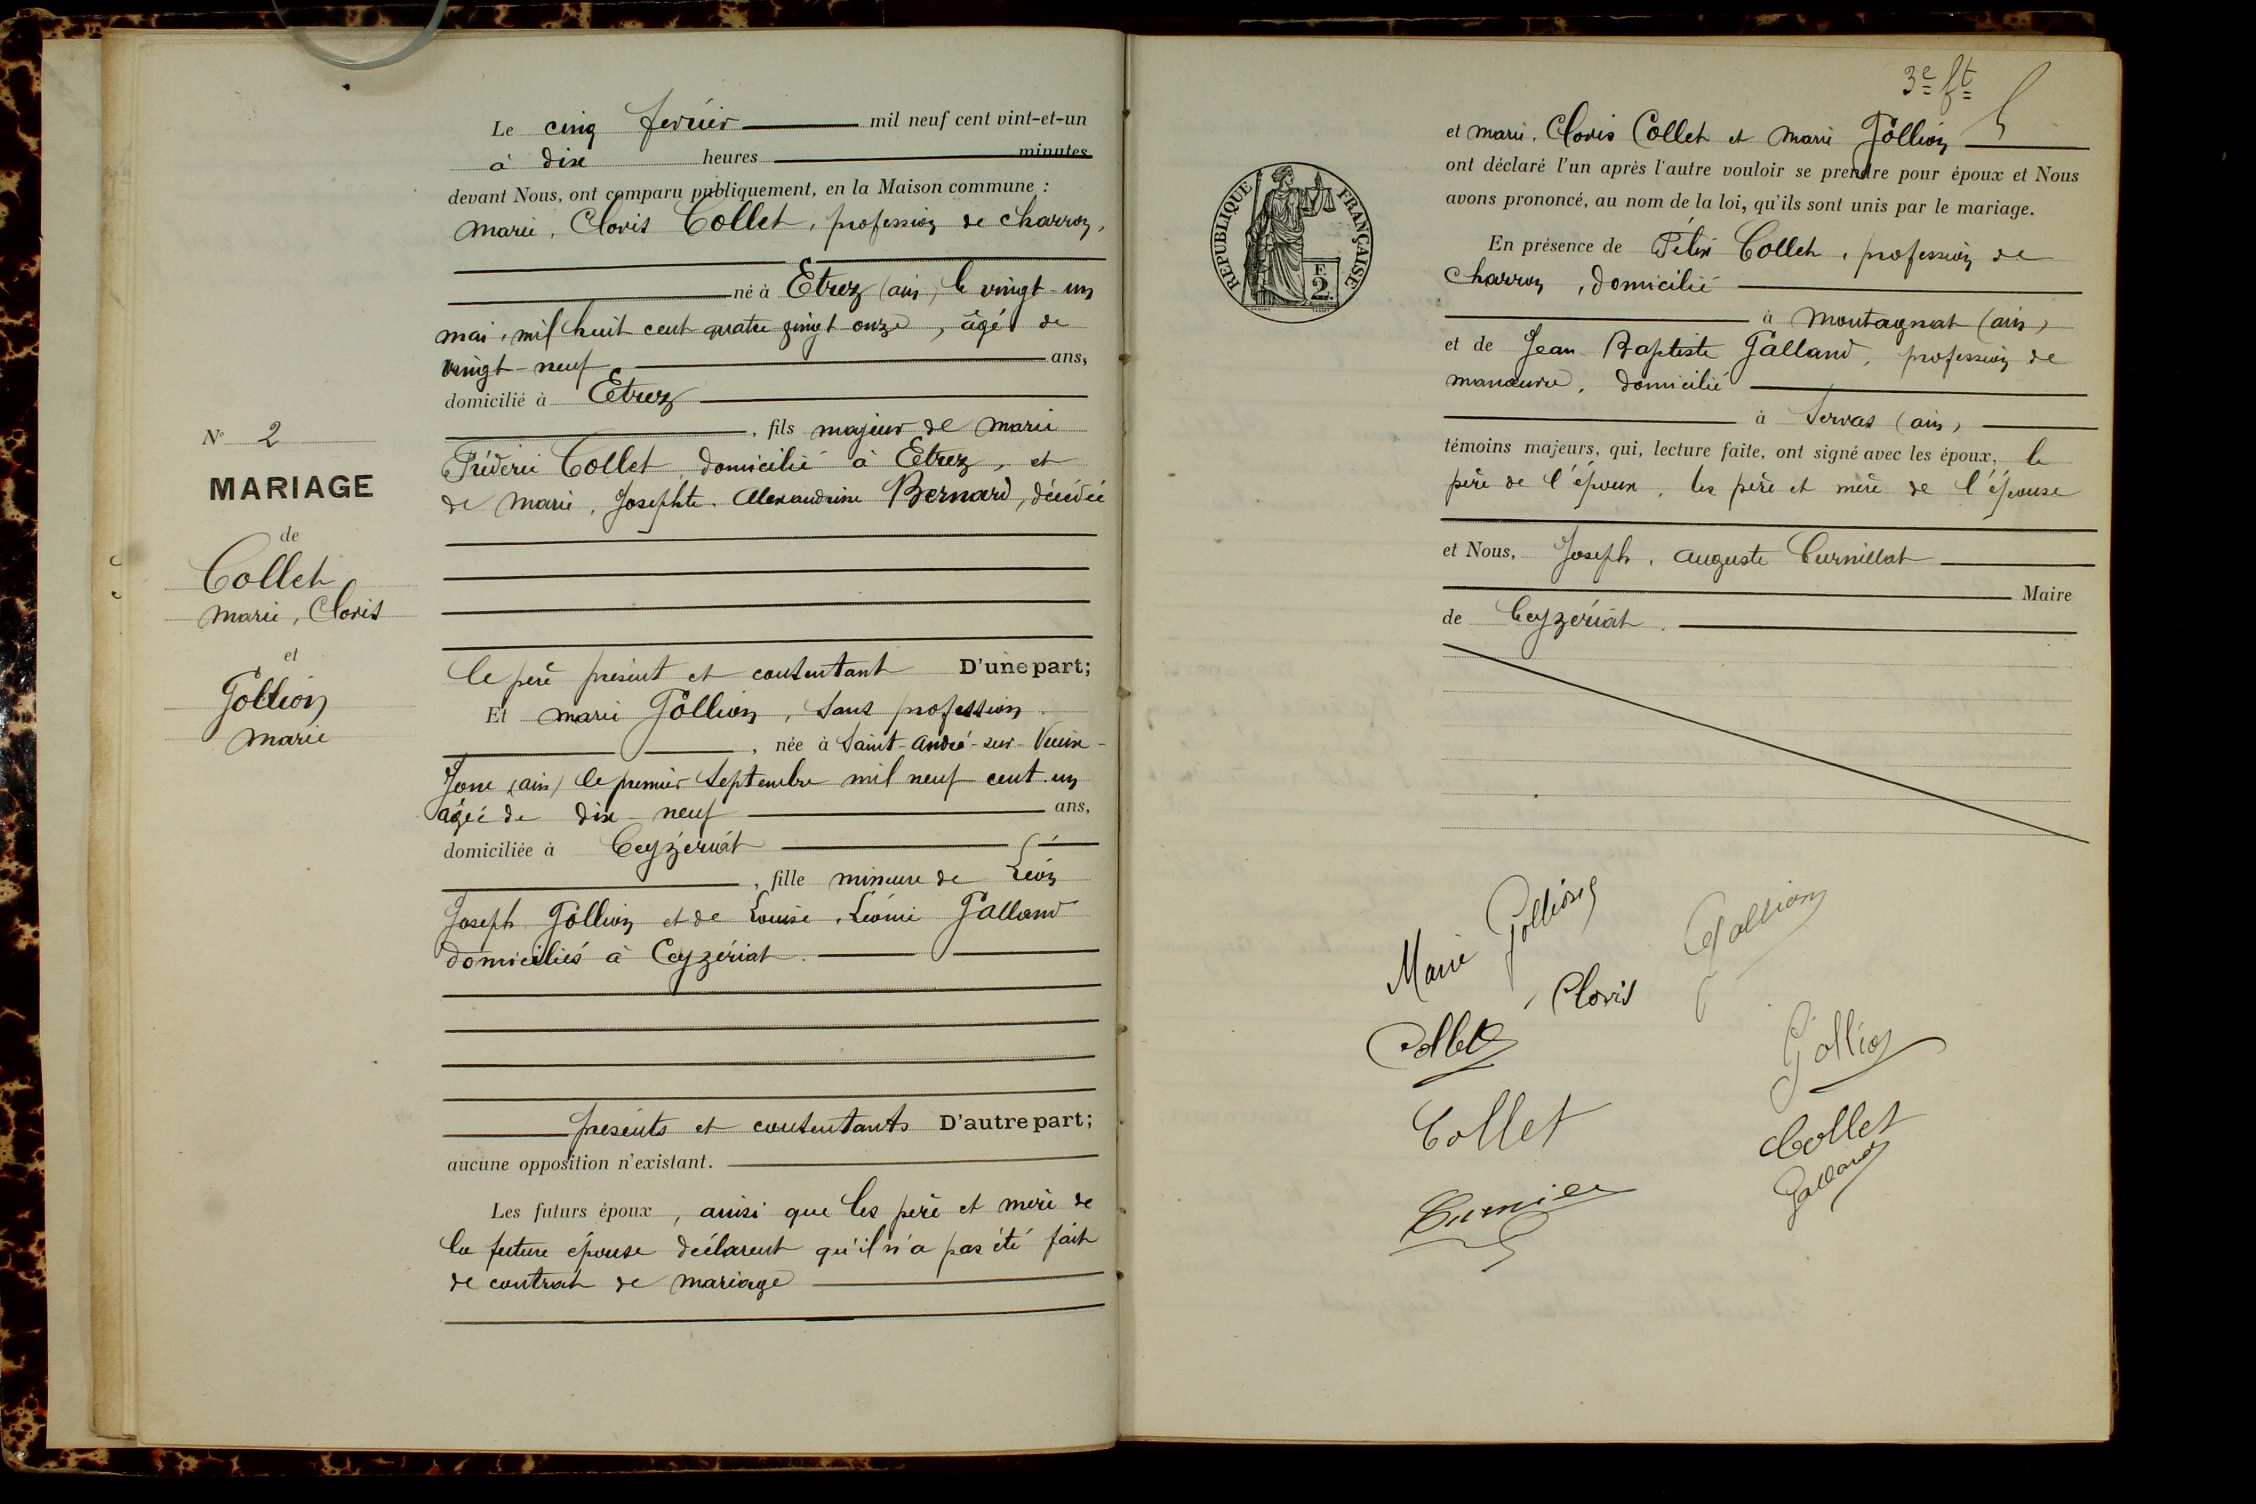 N° 2
MARIAGE
de
Collet
Marie, Clovis
et
Gollion
Marie
Le cinq février mil neuf cent vint-et-un
à dix heures minutes
devant Nous, ont comparu publiquement, en la Maison commune :
Marie, Clovis Collet, profession de charron,
né à Etrez (ain) le vingt-un
mai, mil huit cent quatre vingt onze, âgé de
vingt-neuf ans,
domicilié à Etrez
, fils majeur de Marie
Fréderic Collet, domicilié à Etrez, et
de Marie, Josephte, Alexandrine Bernard, décédée
le père présent et consentant D'une part;
Et Marie Gollion, sans profession
, née à Saint-André-sur-Vieux-
Jonc (ain) le premier Septembre mil neuf cent un
âgée de dix-neuf ans,
domiciliée à Ceyzériat
, fille mineure de Léon
Joseph Gollion et de Louise, Léonie Galland
domiciliés à Ceyzériat.
présents et consentants D'autre part;
aucune opposition n'existant.
Les futurs époux, ainsi que les père et mère de
la future épouse déclarent qu'il n'a pas été fait
de contrat de mariage
3e ft
et Marie, Clovis Collet et Marie Gollion
ont déclaré l'un après l'autre vouloir se prendre pour époux et Nous
avons prononcé, au nom de la loi, qu'ils sont unis par le mariage.
RÉPUBLIQUE FRANÇAISE
2 F.
En présence de Félix Collet, profession de
charron, domicilié
à Montagnat (ain)
et de Jean-Baptiste Galland, profession de
manœuvre, domicilié
à Servas (ain)
témoins majeurs, qui, lecture faite, ont signé avec les époux, le
père de l'époux, les père et mère de l'épouse
et Nous, Joseph, Auguste Curnillat
Maire
de Ceyzériat.
Marie Gollion
Gallion
Collet Clovis
Gollion
Collet
Collet
Galland